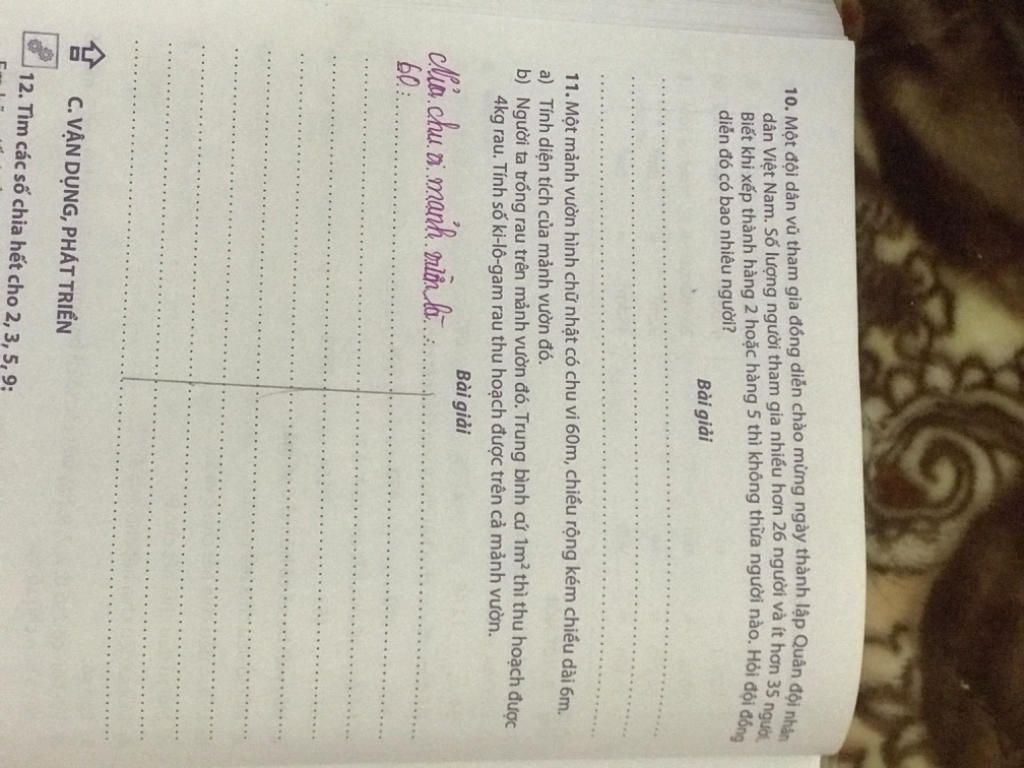 10. Một đội dân vũ tham gia đồng diễn chào mừng ngày thành lập Quân đội nhân
dân Việt Nam. Số lượng người tham gia nhiều hơn 26 người và ít hơn 35 người.
Biết khi xếp thành hàng 2 hoặc hàng 5 thì không thừa người nào. Hỏi đội đồng
diễn đó có bao nhiêu người?
Bài giải
11. Một mảnh vườn hình chữ nhật có chu vi 60m, chiều rộng kém chiều dài 6m.
a) Tính diện tích của mảnh vườn đó.
b) Người ta trồng rau trên mảnh vườn đó. Trung bình cứ 1m² thì thu hoạch được
4kg rau. Tính số ki-lô-gam rau thu hoạch được trên cả mảnh vườn.
Bài giải
Nửa chu vi mảnh vườn là :
60 :
C. VẬN DỤNG, PHÁT TRIỂN
12. Tìm các số chia hết cho 2, 3, 5, 9: